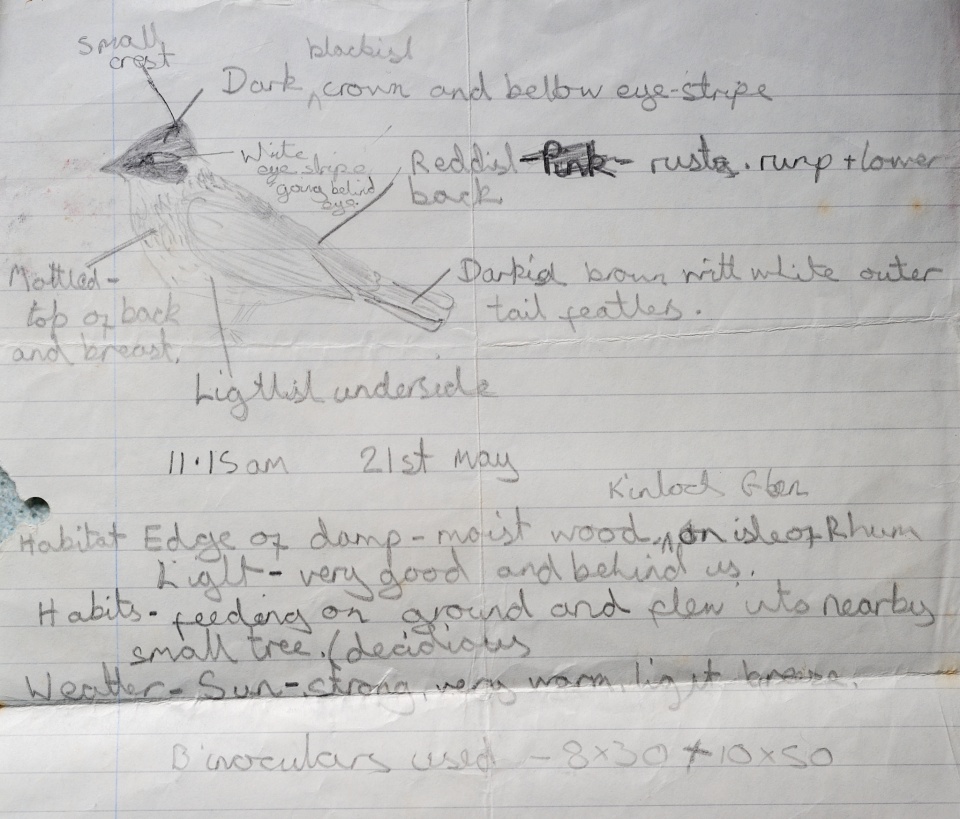 small
crest
blackish
Dark ^ crown and bellow eye-stripe
White
eye stripe
going behind
eye.
Reddish - Pink - rusty. rump + lower
back
Mottled -
top of back
and breast.
Darkish brown with white outer
tail feathers.
Lightish underside
11.15 am 21st May
Kinloch Glen
Habitat Edge of damp - moist wood. ^ on isle of Rhum
Light - very good and behind us.
Habits - feeding on ground and flew into nearby
small tree. (decidious
Weather - Sun - strong, very warm, light breeze.
Binoculars used - 8x30 + 10x50